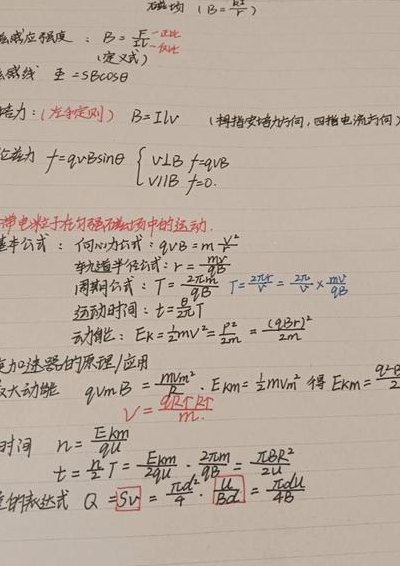 磁场 (B=\frac{kI}{r})
磁感应强度: B=\frac{F}{IL} -正比 -反比
(定义式)
磁感线 Φ=SBcosθ
培力: (左手定则) B=ILv (拇指安培力方向, 四指电流方向)
洛兹力 f=qvBsinθ { v⊥B f=qvB
v//B f=0.
带电粒子在匀强磁场中的运动.
基本公式: 向心力公式: qvB=m\frac{v^2}{r}
轨道半径公式: r=\frac{mv}{qB}
周期公式: T=\frac{2πm}{qB} T=\frac{2πr}{v}=\frac{2π}{v}×\frac{mv}{qB}
运动时间: t=\frac{θ}{2π}T
动能: Ek=\frac{1}{2}mv^2=\frac{p^2}{2m}=\frac{(qBr)^2}{2m}
加速器的原理/应用
最大动能 qvmB=\frac{mvm^2}{R}. Ekm=\frac{1}{2}mvm^2 得 Ekm=\frac{q^2B
V=
时间 n=\frac{Ekm}{qU}
t=\frac{n}{2}T=\frac{Ekm}{2qU}·\frac{2πm}{qB}=\frac{πBR^2}{2U}
的表达式 Q=Sv=\frac{πd^2}{4}·\frac{U}{Bd}=\frac{πdU}{4B}